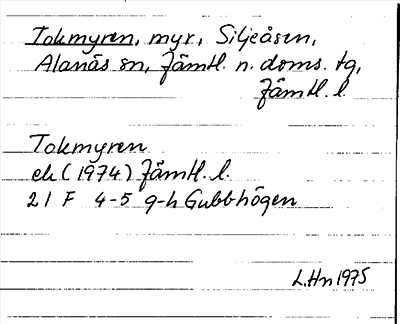 Tokmyren, myr, Siljeåsen,
Alanäs sn, Jämtl. n. doms. tg,
Jämtl. l.
Tokmyren
ek (1974) Jämtl. l.
21 F 4-5 g-h Gubbhögen
L.Hn 1975